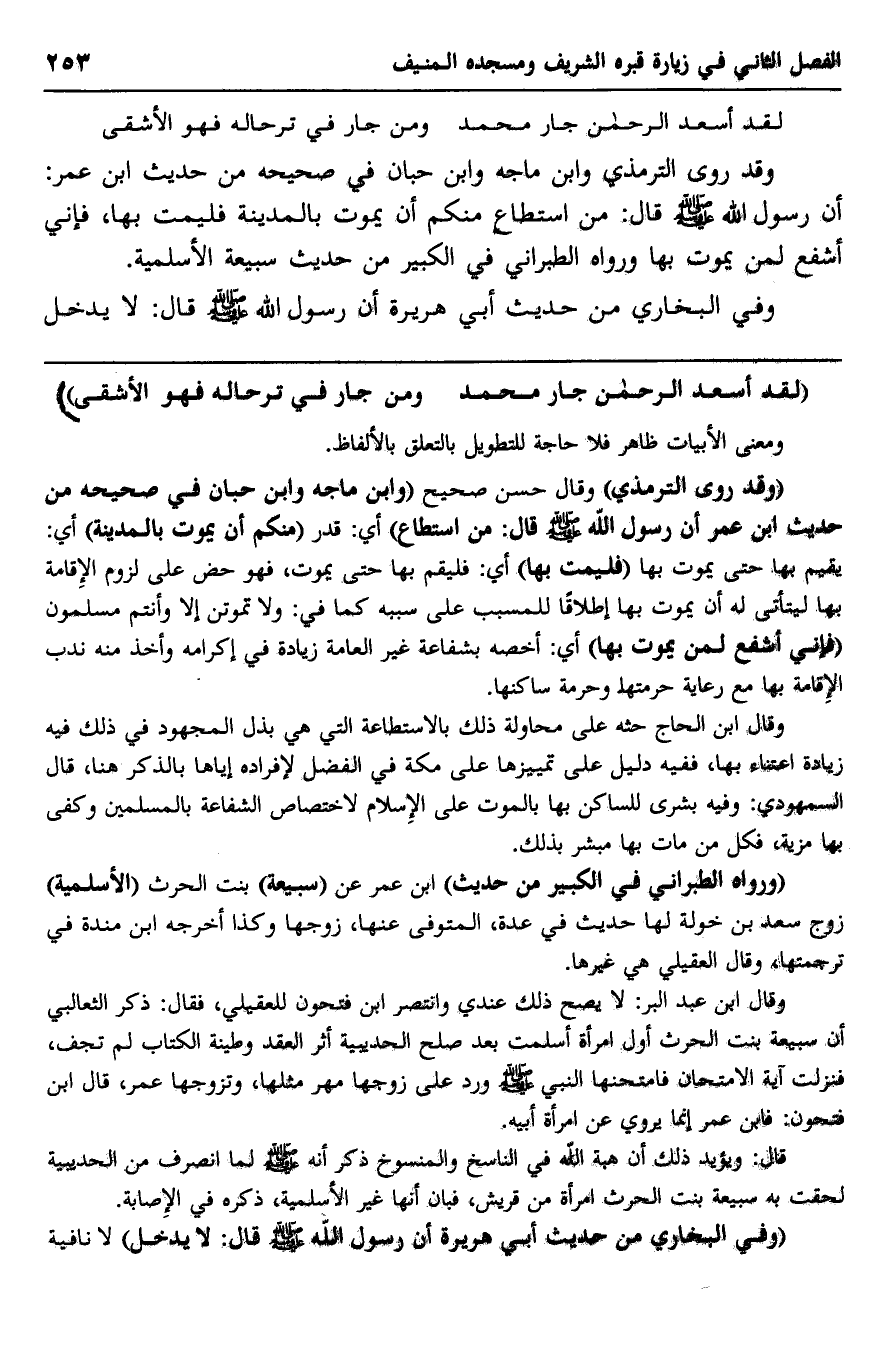 الفصل الثاني في زيارة قبره الشريف ومسجده المنيف ٢٥٣
لقد أسعد الرحمٰن جار محمد ومن جار في ترحاله فهو الأشقى
وقد روى الترمذي وابن ماجه وابن حبان في صحيحه من حديث ابن عمر:
أن رسول الله ﷺ قال: من استطاع منكم أن يموت بالمدينة فليمت بها، فإني
أشفع لمن يموت بها ورواه الطبراني في الكبير من حديث سبيعة الأسلمية.
وفي البخاري من حديث أبي هريرة أن رسول الله ﷺ قال: لا يدخل
(لقد أسعد الرحمٰن جار محمد ومن جار في ترحاله فهو الأشقى)
ومعنى الأبيات ظاهر فلا حاجة للتطويل بالتعلق بالألفاظ.
(وقد روى الترمذي) وقال حسن صحيح (وابن ماجه وابن حبان في صحيحه من
حديث ابن عمر أن رسول اللّه ﷺ قال: من استطاع) أي: قدر (منكم أن يموت بالمدينة) أي:
يقيم بها حتى يموت بها (فليمت بها) أي: فليقم بها حتى يموت، فهو حض على لزوم الإقامة
بها ليتأتى له أن يموت بها إطلاقًا للمسبب على سببه كما في: ولا تموتن إلا وأنتم مسلمون
(فإني أشفع لمن يموت بها) أي: أخصه بشفاعة غير العامة زيادة في إكرامه وأخذ منه ندب
الإقامة بها مع رعاية حرمتها وحرمة ساكنها.
وقال ابن الحاج حثه على محاولة ذلك بالاستطاعة التي هي بذل المجهود في ذلك فيه
زيادة اعتناء بها، ففيه دليل على تمييزها على مكة في الفضل لإفراده إياها بالذكر هنا، قال
السمهودي: وفيه بشرى للساكن بها بالموت على الإسلام لاختصاص الشفاعة بالمسلمين وكفى
بها مزية، فكل من مات بها مبشر بذلك.
(ورواه الطبراني في الكبير من حديث) ابن عمر عن (سبيعة) بنت الحرث (الأسلمية)
زوج سعد بن خولة لها حديث في عدة، المتوفى عنها، زوجها وكذا أخرجه ابن مندة في
ترجمتها، وقال العقيلي هي غيرها.
وقال ابن عبد البر: لا يصح ذلك عندي وانتصر ابن فتحون للعقيلي، فقال: ذكر الثعالبي
أن سبيعة بنت الحرث أول امرأة أسلمت بعد صلح الحديبية أثر العقد وطينة الكتاب لم تجف،
فنزلت آية الامتحان فامتحنها النبي ﷺ ورد على زوجها مهر مثلها، وتزوجها عمر، قال ابن
فتحون: فابن عمر إنما يروي عن امرأة أبيه.
قال: ويؤيد ذلك أن هبة اللّه في الناسخ والمنسوخ ذكر أنه ﷺ لما انصرف من الحديبية
لحقت به سبيعة بنت الحرث امرأة من قريش، فبان أنها غير الأسلمية، ذكره في الإصابة.
(وفي البخاري من حديث أبي هريرة أن رسول اللّه ﷺ قال: لا يدخل) لا نافية